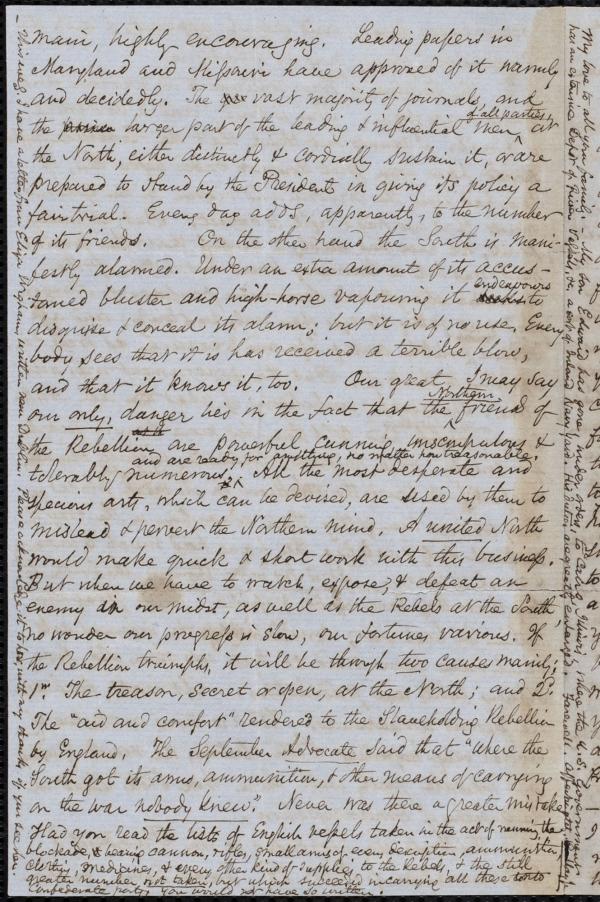 main, highly encouraging. Leading papers in
Maryland and Missouri have approved of it warmly
and decidedly. The vast majority of journals, and
of all parties,
the larger part of the leading & influential men, at
the North, either distinctly & cordially sustain it, or are
prepared to stand by the President in giving its policy a
fair trial. Every day adds, apparently, to the number
of its friends. On the other hand the South is mani-
festly alarmed. Under an extra amount of its accus-
endeavours
tomed bluster and high-horse vapouring it to
disguise & conceal its alarm; but it is of no use. Every
body sees that it is has received a terrible blow,
and that it knows it, too. Our great, I may say
Northern
our only, danger lies in the fact that the friends of
the Rebellion are powerful, cunning, unscrupulous &
and are ready for anything, no matter how treasonable.
tolerably numerous, All the most desperate and
specious arts, which can be devised, are used by them to
mislead & pervert the Northern mind. A united North
would make quick & short work with this business.
But when we have to watch, expose, & defeat an
enemy in our midst, as well as the Rebels at the South,
no wonder our progress is slow, our fortunes various. If
the Rebellion triumphs, it will be through two causes mainly:
1st. The treason, secret or open, at the North; and 2d.
The "aid and comfort" rendered to the Slaveholding Rebellion
by England. The September Advocate said that "where the
South got its arms, ammunition, & other means of carrying
on the war nobody knew." Never was there a greater mistake
Had you read the lists of English vessels taken in the act of running the
blockade, & bearing cannon, rifles, small arms of every description, ammunition,
clothing, medicines, & every other kind of supplies to the Rebels, & the still
greater number, not taken, but which succeeded in carrying all these into
Confederate ports, you would not have so written.
My love to all your family. My son Edward has gone, under orders to Cairo, Illinois, where the U.S. Government
has an extensive Depot of River vessels, &c. a sort of Inland Navy Yard. His duties are greatly enlarged. Farewell. Affectionately
This week, I have a letter from Eliza Wigham, written near Dublin. Please acknowledge it to her, with my thanks, if you see her.